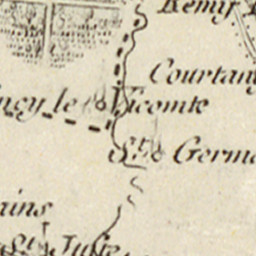 Remy
Courtan
ncy le Vicomte
St. Germ
ains
St. Juse